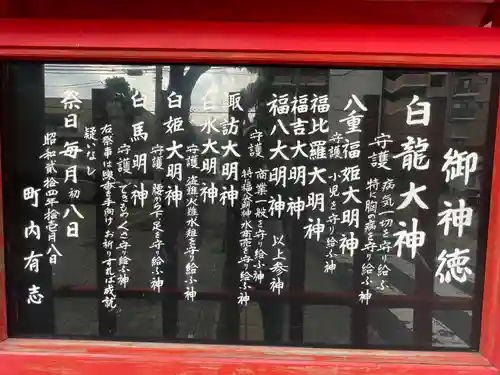 御神徳
白龍大神
守護 病気一切を守り給ふ
特に胸の病を守り給ふ神
八重福姫大明神
守護 小児を守り給ふ神
福比羅大明神
福吉大明神
福八大明神 以上参神
守護 商業一般を守り給ふ神
諏訪大明神
守護 特に婦人病神水商売を守り給ふ神
白水大明神
白姫大明神
守護 盗難火難水難を守り給ふ神
守護 腰から下足を守り給ふ神
白馬明神
守護 できものくさを守り給ふ神
右祭事は線香を手向けお祈りすれば成就
疑いなし
祭日毎月初八日
昭和貳拾四年拾壱月八日
町内有志